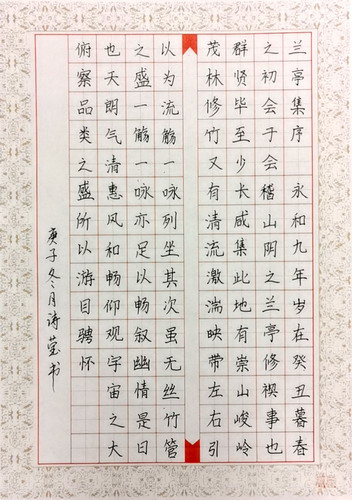 兰亭集序 永和九年岁在癸丑暮春
之初会于会稽山阴之兰亭修禊事也
群贤毕至少长咸集此地有崇山峻岭
茂林修竹又有清流激湍映带左右引
以为流觞一咏列坐其次虽无丝竹管
之盛一觞一咏亦足以畅叙幽情是日
也天朗气清惠风和畅仰观宇宙之大
俯察品类之盛所以游目骋怀
庚子冬月诗莹书